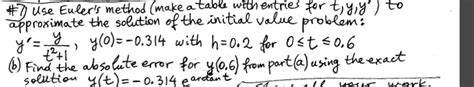 #7) Use Euler's method (make a table with entries for t, y, y') to
approximate the solution of the initial value problem:
y' = y/(t²+1), y(0)=-0.314 with h=0.2 for 0≤t≤0.6
(b) Find the absolute error for y(0.6) from part(a) using the exact
solution y(t)=-0.314 e^arctan t